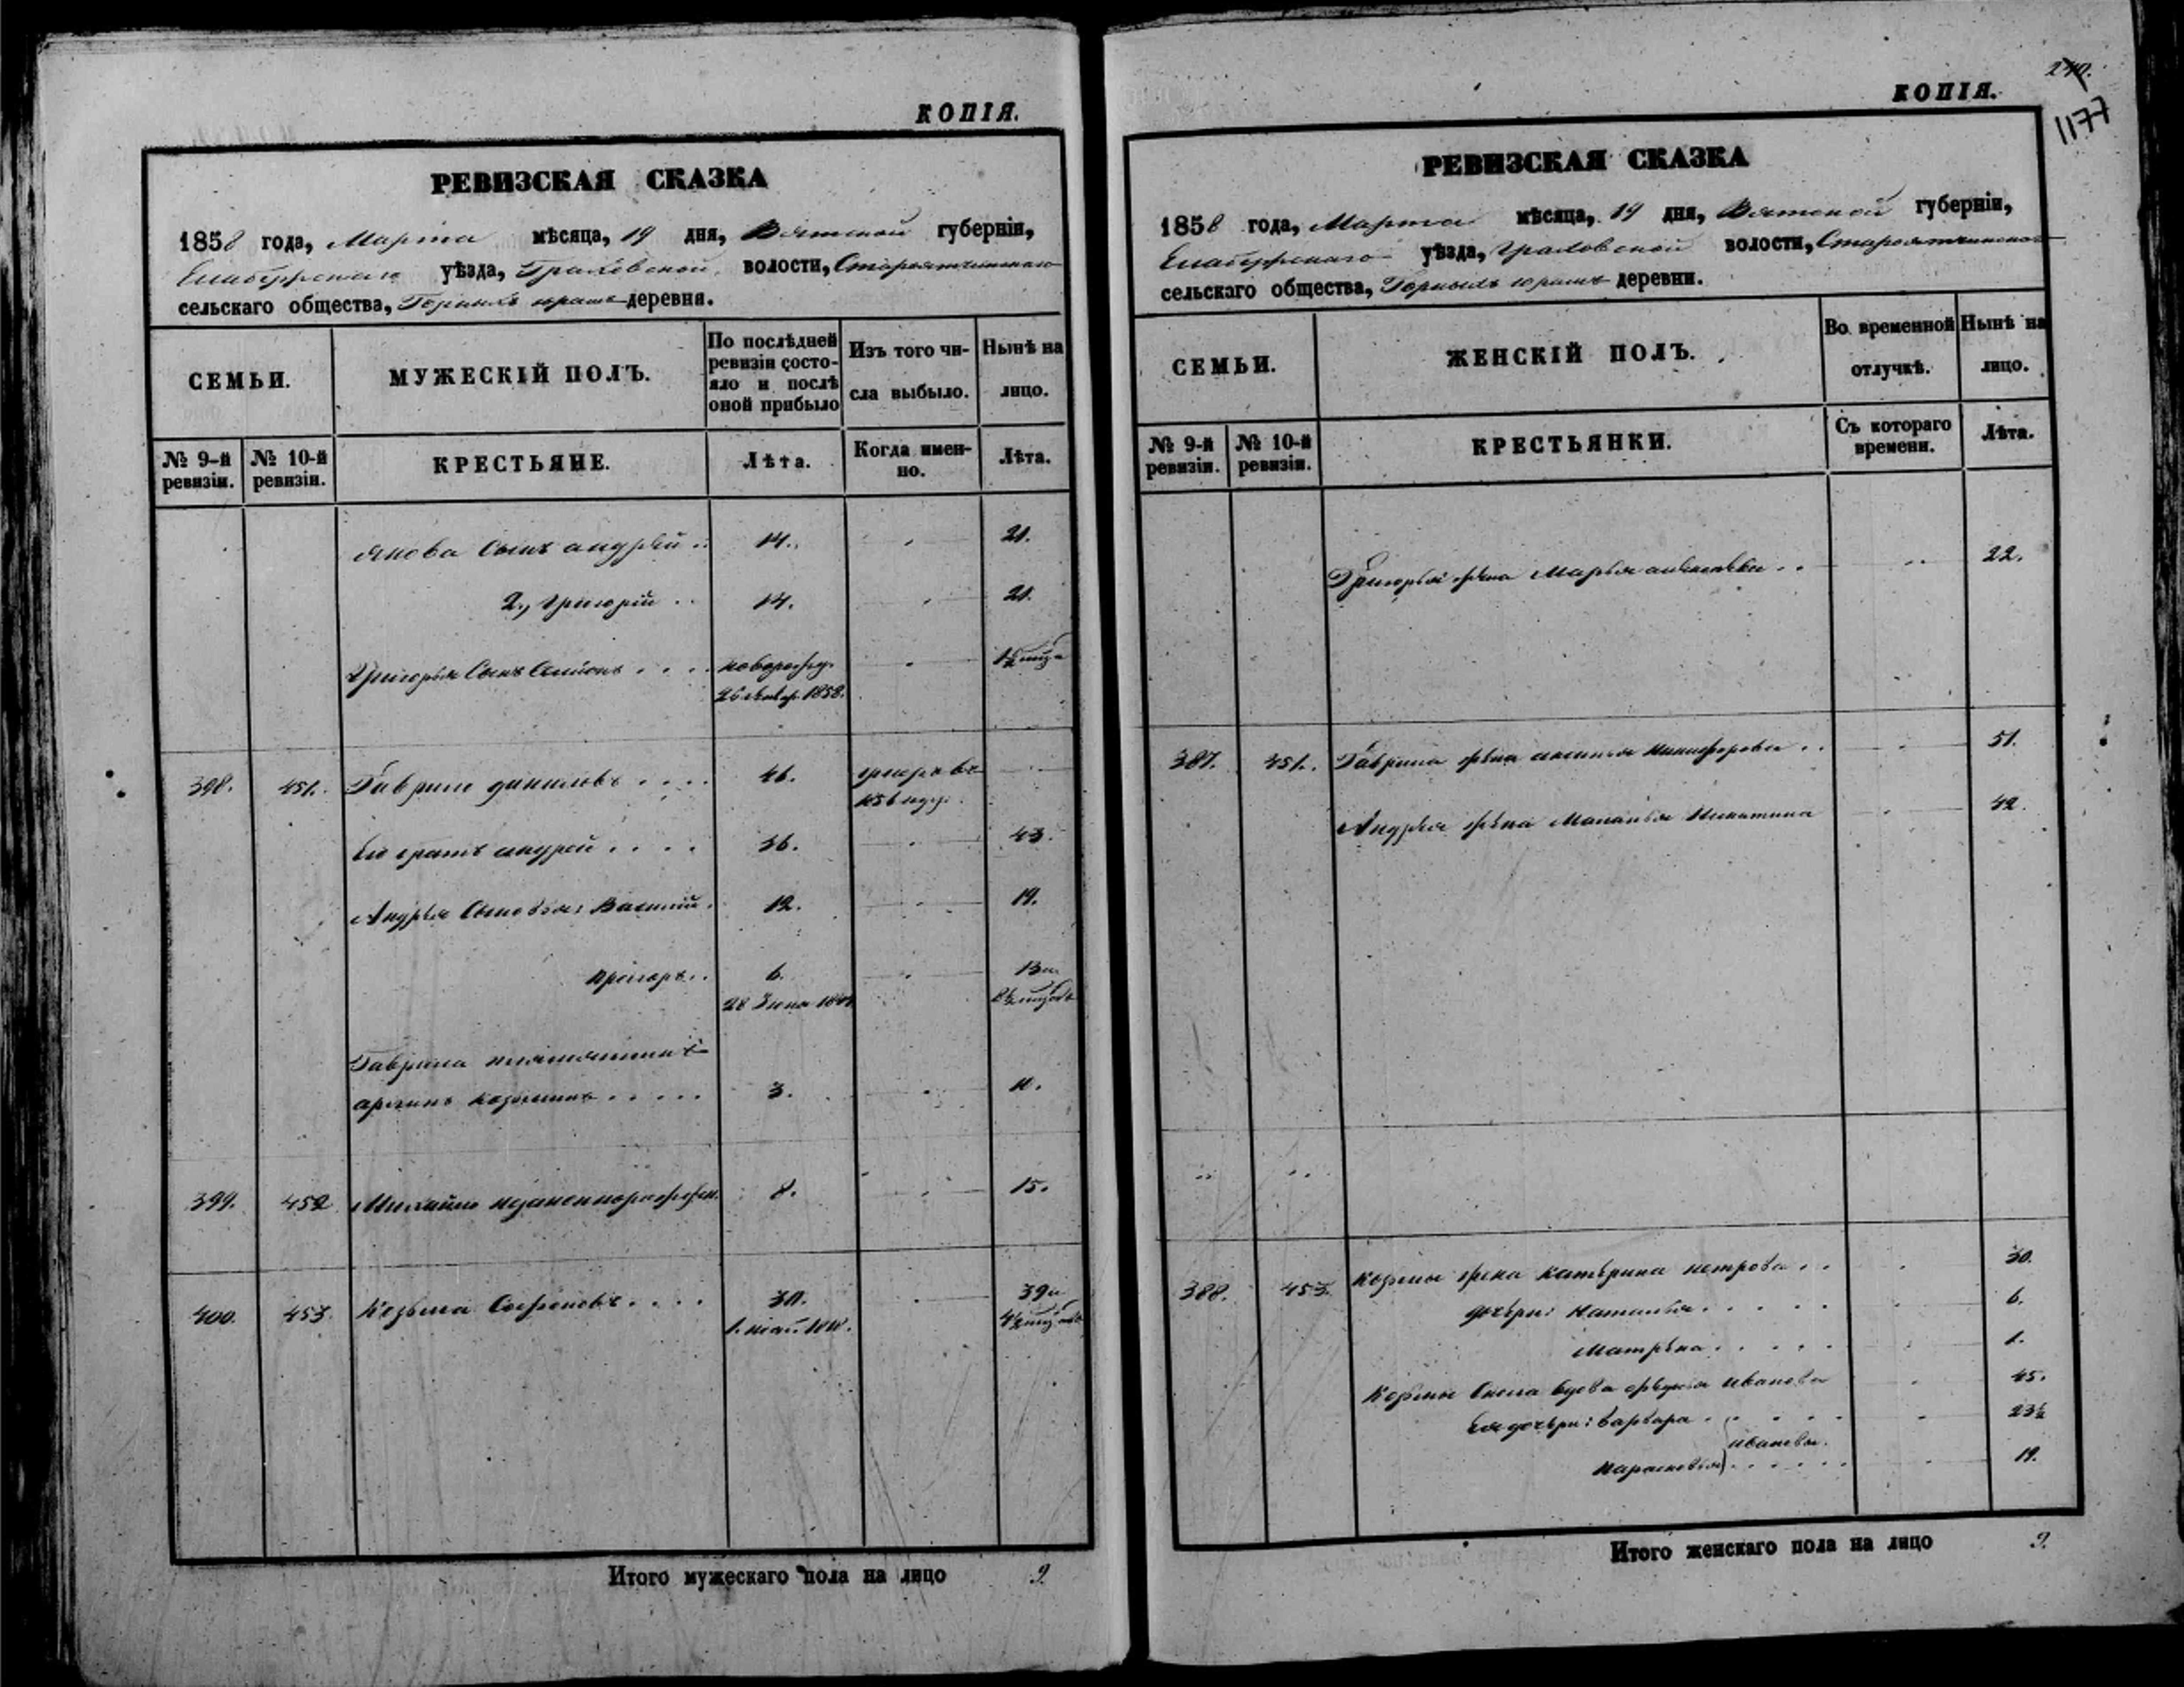 КОПІЯ.
РЕВИЗСКАЯ СКАЗКА
1858 года, Марта мѣсяца, 19 дня, Вятской губерніи,
Елабужскаго уѣзда, Граховской волости, Староятчинскаго
сельскаго общества, Горныхъ юрашъ деревня.
СЕМЬИ.
МУЖЕСКІЙ ПОЛЪ.
По послѣдней ревизіи состо-
яло и послѣ
оной прибыло
Изъ того чи-
сла выбыло.
Нынѣ на
лицо.
№ 9-й ревизіи.
№ 10-й ревизіи.
КРЕСТЬЯНЕ.
Лѣта.
Когда имен-
но.
Лѣта.
Якова Сынъ андрей .. 14. 21.
2., григорій .. 14. 21.
Григорья Сынъ .... новорожд. 1½
26 1858.
398. 451. Гаврило даниловъ .... 46. 
его братъ андрей .... 36. 43.
Андрея Сыновья: Василій. 12. 19.
6. 13 и
28
Гаврила племянникъ
козминъ ..... 3. 11.
399. 452 Михайло 8. 15.
400. 453. Козьма Софроновъ .... 39 и
1.
Итого мужескаго пола на лицо 9.
240.
1177
КОПІЯ.
РЕВИЗСКАЯ СКАЗКА
1858 года, Марта мѣсяца, 19 дня, Вятской губерніи,
Елабужскаго уѣзда, Граховской волости, Староятчинскаго
сельскаго общества, Горныхъ юрашъ деревни.
СЕМЬИ.
ЖЕНСКІЙ ПОЛЪ.
Во временной
отлучкѣ.
Нынѣ на
лицо.
№ 9-й ревизіи.
№ 10-й ревизіи.
КРЕСТЬЯНКИ.
Съ котораго
времени.
Лѣта.
Григорья жена Марья .. 22.
387. 451. Гаврила жена аксинья Никифорова .. 51.
Андрея жена Маланья Никитина 42.
388. 453. Козьмы жена катерина петрова .. 30.
дочери: Наталья ..... 6.
Матрена ..... 1.
Козьмы вдова Иванова 45.
ея дочери: варвара ..... 23½
ивановы.
парасковья ...... 19.
Итого женскаго пола на лицо 9.